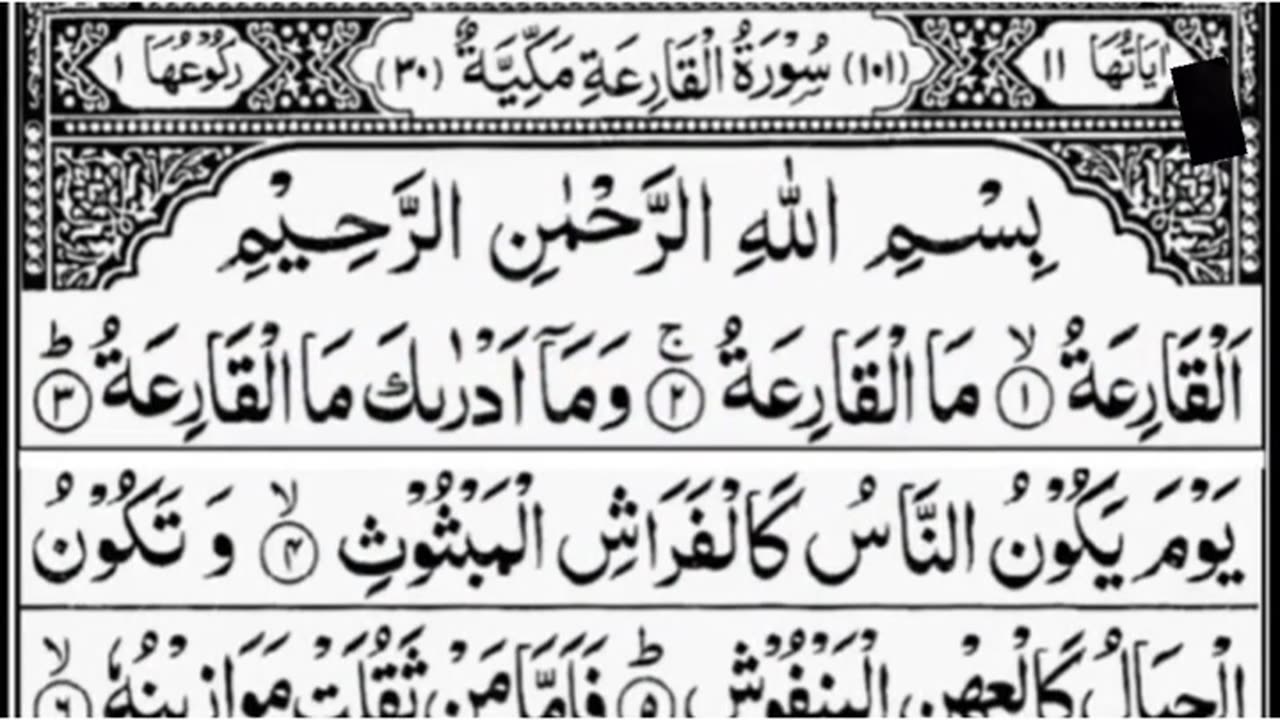 اٰيَاتُهَا ١١ (١٠١) سُوْرَةُ الْقَارِعَةِ مَكِّيَّةٌ (٣٠) رُكُوْعُهَا ١
بِسْمِ اللّٰهِ الرَّحْمٰنِ الرَّحِيْمِ
اَلْقَارِعَةُ ۙ﴿١﴾ مَا الْقَارِعَةُ ۚ﴿٢﴾ وَمَاۤ اَدْرٰىكَ مَا الْقَارِعَةُ ؕ﴿٣﴾
يَوْمَ يَكُوْنُ النَّاسُ كَالْفَرَاشِ الْمَبْثُوْثِ ۙ﴿۴﴾ وَ تَكُوْنُ
الْجِبَالُ كَالْعِهْنِ الْمَنْفُوْشِ ؕ﴿۵﴾ فَاَمَّا مَنْ ثَقُلَتْ مَوَازِيْنُهٗ ۙ﴿۶﴾